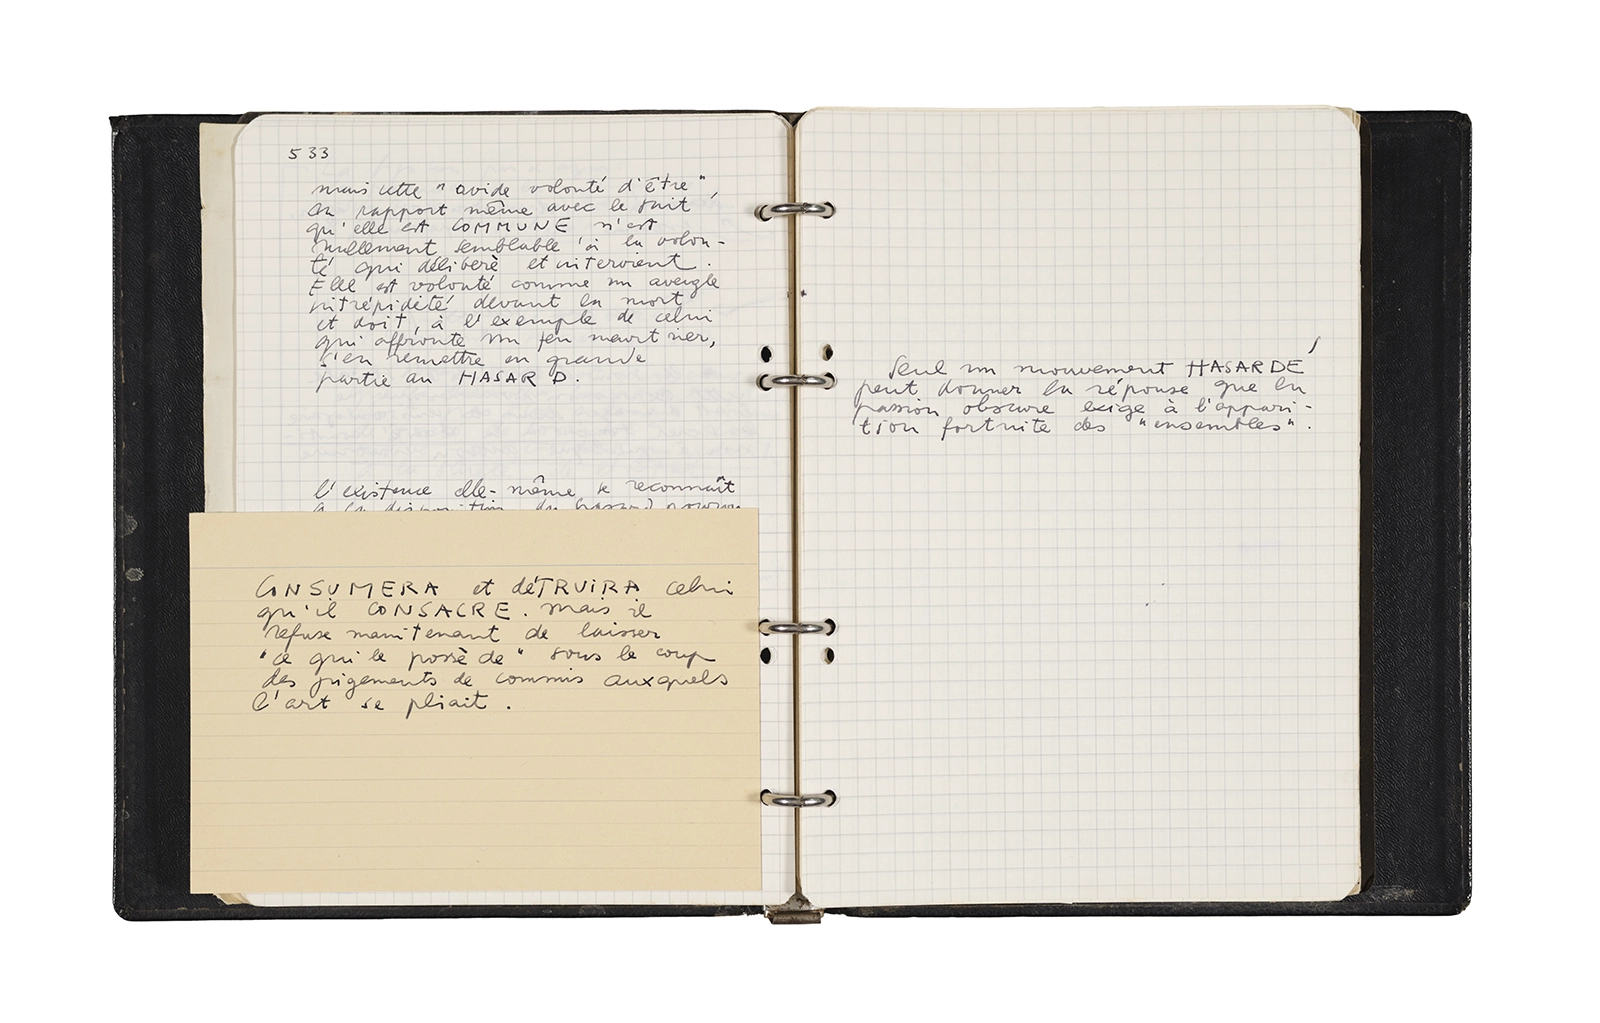 533
mais cette "avide volonté d'être",
en rapport même avec le fait
qu'elle est COMMUNE n'est
nullement semblable à la volon-
té qui délibère et intervient.
Elle est volonté comme un aveugle
intrépidité devant la mort
et doit, à l'exemple de celui
qui affronte un feu meurtrier,
s'en remettre en grande
partie au HASARD.
l'existence elle-même se reconnaît
à la disposition du hasard pourvu
CONSUMERA et déTRUiRA celui
qu'il CONSACRE. mais il
refuse maintenant de laisser
"ce qui le possède" sous le coup
des jugements de commis auxquels
l'art se pliait.
Seul un mouvement HASARDÉ
peut donner la réponse que la
passion obscure exige à l'appari-
tion fortuite des "ensembles".